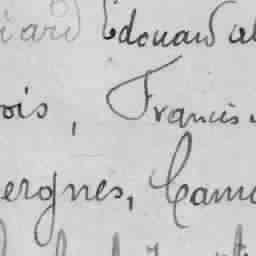 iard Edouard al
ois, Francis
ergnes, Cam